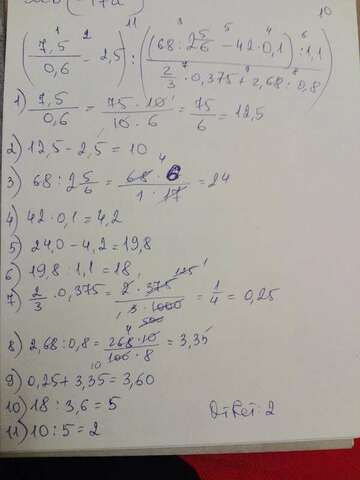 11 3 5 4 6 10
(7,5/0,6 - 2,5) : ((68 : 2 5/6 - 42 · 0,1) : 1,1 / 2/3 · 0,375 + 2,68 : 0,8)
1) 7,5/0,6 = 75 · 10/10 · 6 = 75/6 = 12,5
2) 12,5 - 2,5 = 10
3) 68 : 2 5/6 = 68 · 6/1 · 17 = 24
4) 42 · 0,1 = 4,2
5) 24,0 - 4,2 = 19,8
6) 19,8 : 1,1 = 18
7) 2/3 · 0,375 = 2 · 375/3 · 1000 = 1/4 = 0,25
8) 2,68 : 0,8 = 268 · 10/100 · 8 = 3,35
9) 0,25 + 3,35 = 3,60
10) 18 : 3,6 = 5
Ответ: 2
11) 10 : 5 = 2